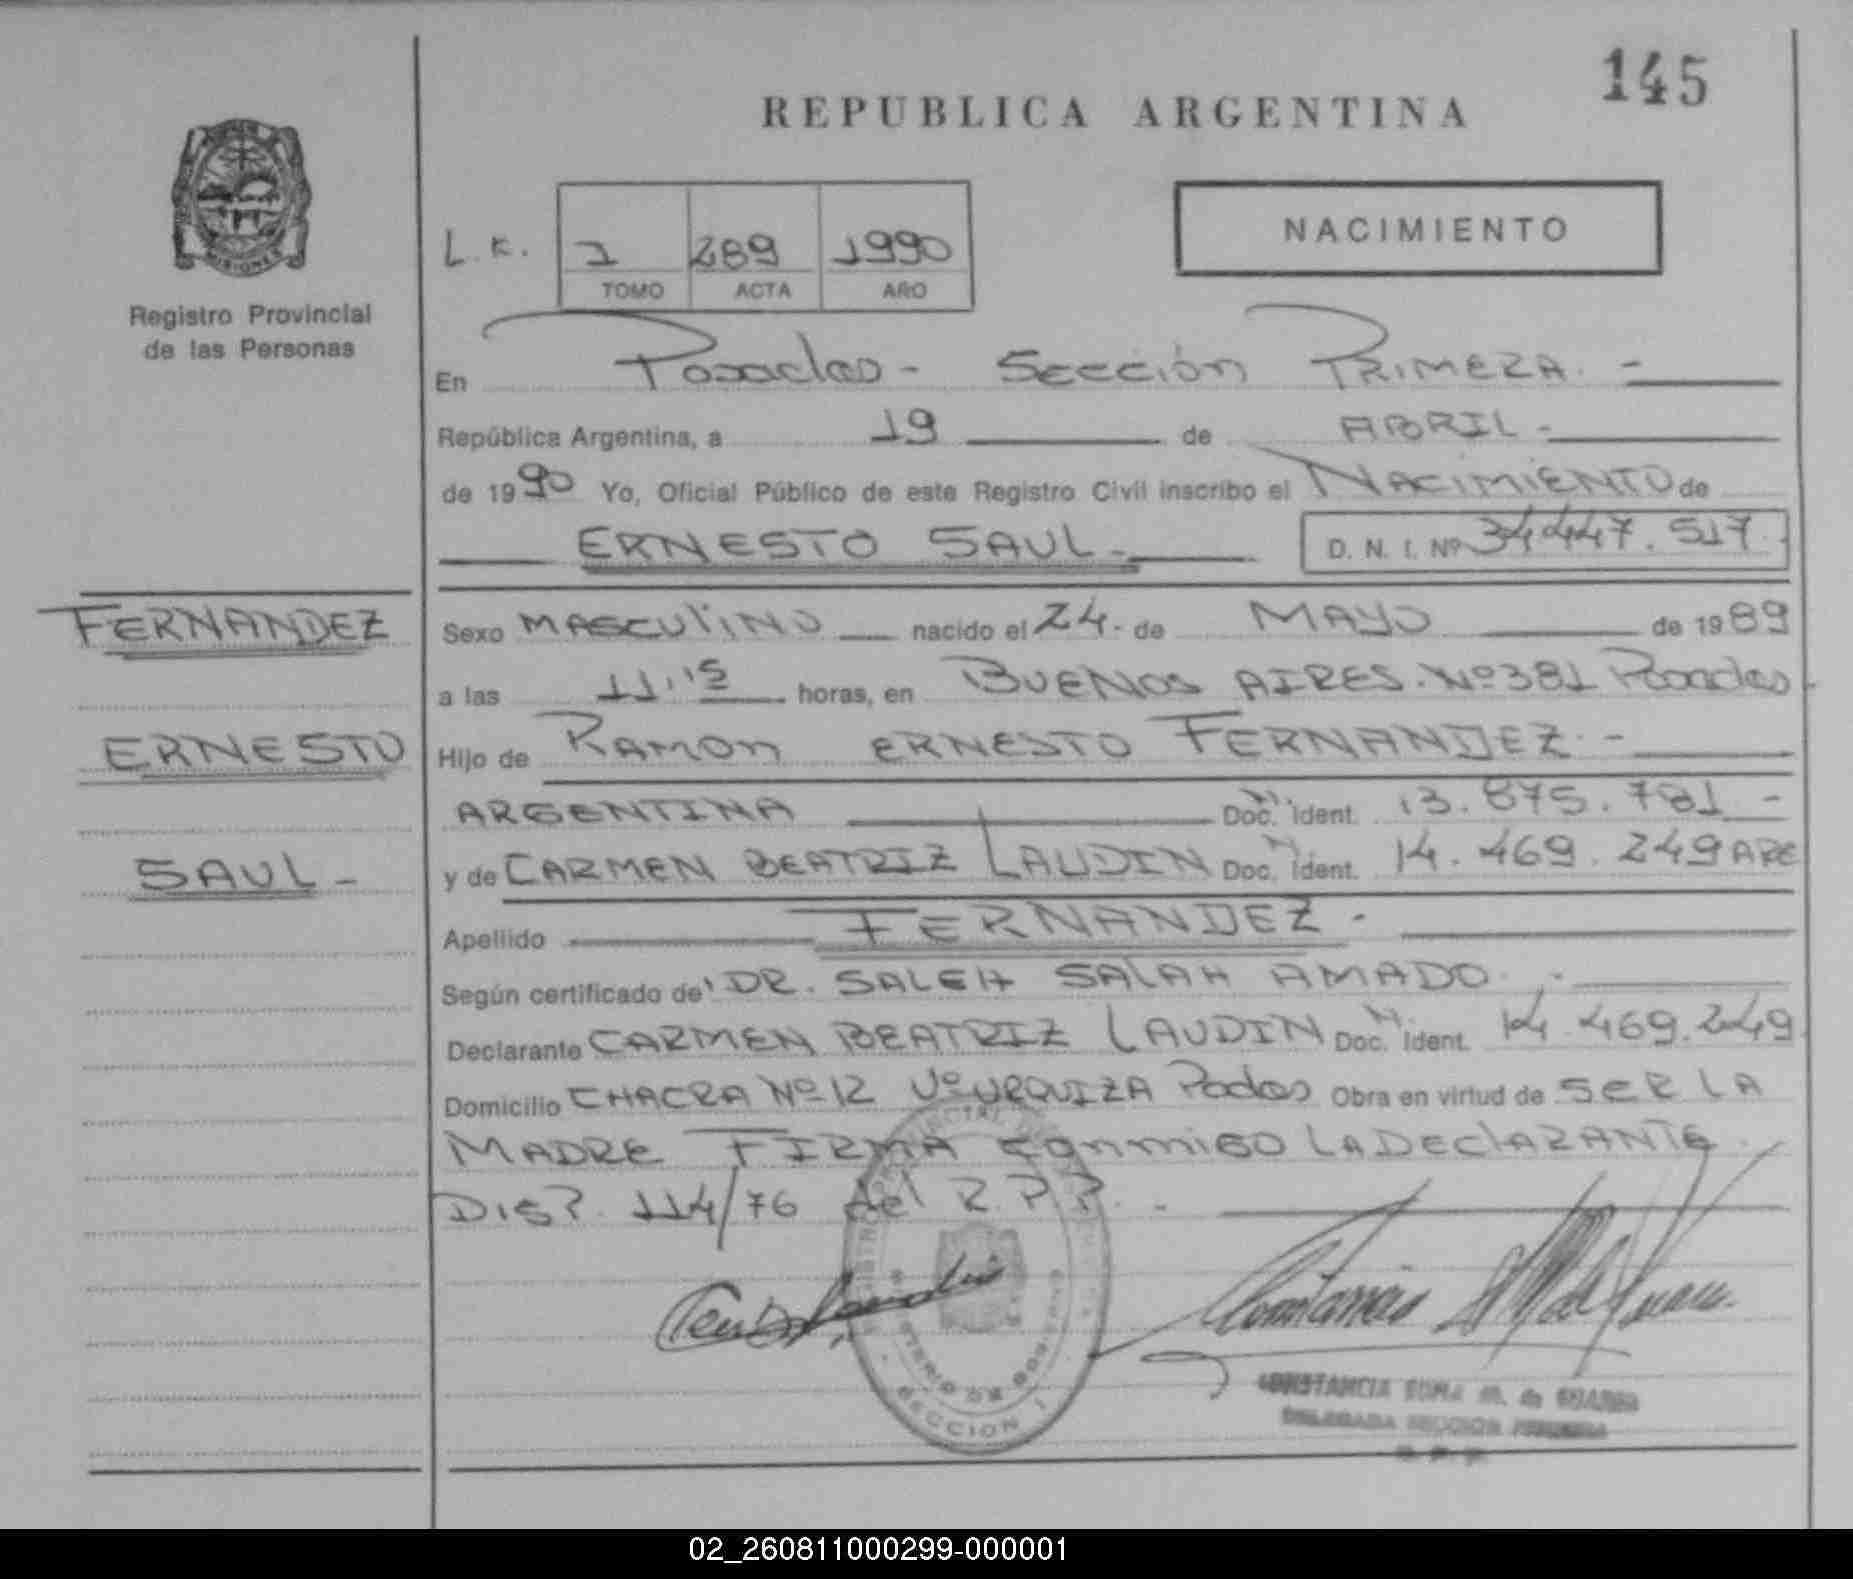 145
REPUBLICA ARGENTINA
MISIONES
Registro Provincial
de las Personas
L.K. 1 289 1990
TOMO ACTA AÑO
NACIMIENTO
En Posadas - Sección PRIMERA. -
República Argentina, a 19 de ABRIL -
de 1990 Yo, Oficial Público de este Registro Civil inscribo el NACIMIENTO de
ERNESTO SAUL - D. N. I. Nº 34447.517
FERNANDEZ
ERNESTO
SAUL -
Sexo MASCULINO nacido el 24. de MAYO de 1989
a las 11,15 horas, en BUENOS AIRES. Nº 381 Posadas
Hijo de RAMON ERNESTO FERNANDEZ. -
ARGENTINA Doc. N. Ident. 13.875.781 -
y de CARMEN BEATRIZ LAUDIN Doc. N. Ident. 14.469.249 ARG
Apellido FERNANDEZ -
Según certificado de DR. SALEH SALAH AMADO. -
Declarante CARMEN BEATRIZ LAUDIN Doc. N. Ident. 14.469.249
Domicilio CHACRA Nº 12 Vº URQUIZA Podas Obra en virtud de SER LA
MADRE FIRMA conmigo LA DECLARANTE.
DISP. 114/76 del R.P.P. -
MINISTERIO DE GOBIERNO
SECCION 1
CONSTANCIA de SUAREZ
DELEGADA SECCION PRIMERA
R. P. P.
02_260811000299-000001